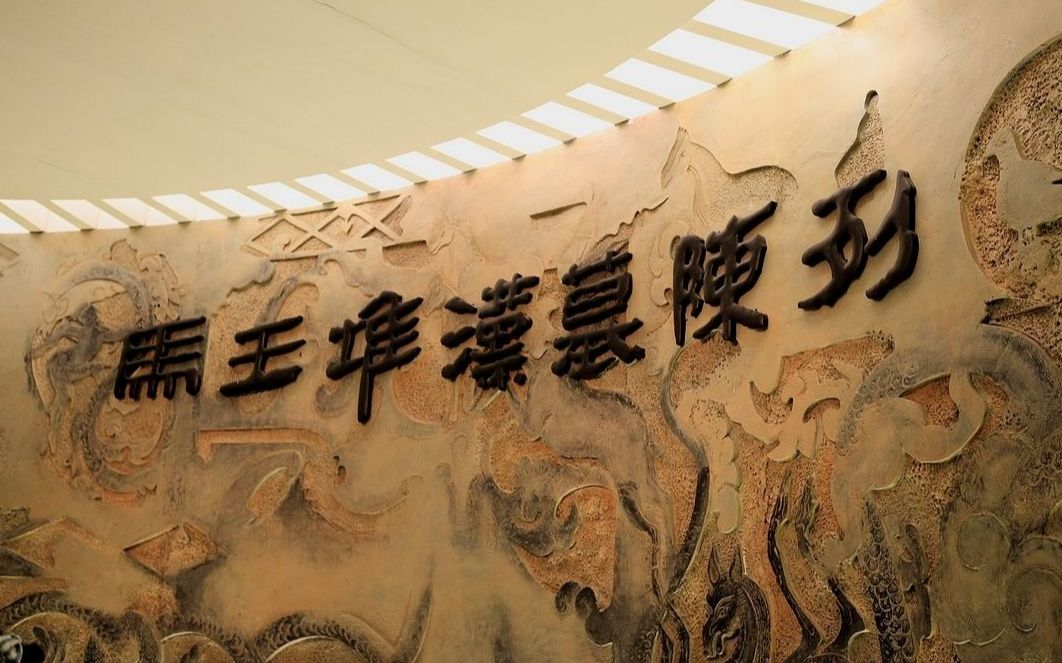 馬王堆漢墓陳列